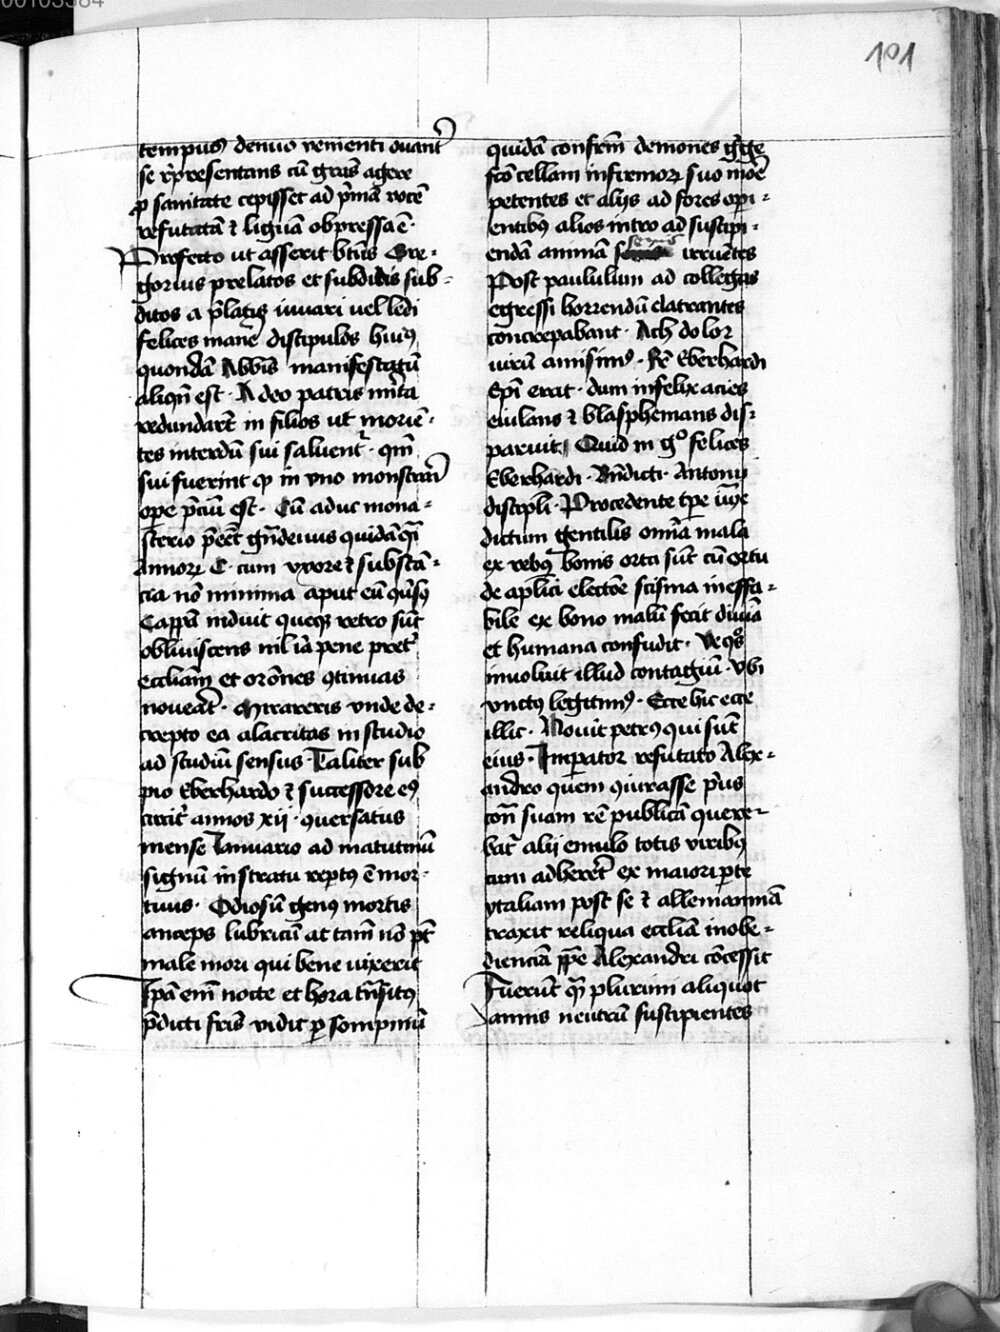 101
tempus denuo venienti ouant̄
se rep̄sentans cū grās agere
ꝓ sanitate cepisset ad p̄mā vocē
refutatā ⁊ liguā obpressa ē ·
Profecto ut asserit btūs Gre-
gorius prelatos et subditis sub-
ditos a p̄latis iuuari uel ledi
felices mane discipulos huiꝰ
quondā Abbīs manifestatū
aliqn̄ est · A deo patris mīta
redundarēt in filios ut moriē-
tes interdū sui saluent᷑ · qm̄
sui fuerint in vno monst̄rari
ope p̄ciū est · Cū aduc mona-
sterio p̄eēt quidā
Annoꝝ C · cum vxore ⁊ substā-
cia nō minima aput eū
Cappā induit queqꝫ retro sūt
obliuiscens nil iā pene pret᷑
ecclīam et orōnes ꝯtinuas
noueāt · Mirareris vnde de-
crepto ea alacritas in studio
ad studiū sensus · Taliter sub
pio Eberhardo ⁊ successore eiꝰ
annos xij · ꝯuersatus
mense Ianuario ad matutinū
signū in stratu rep̄tꝰ ē mor-
tuus · Odiosū genꝰ mortis
anceps lubricū at tam̄ nō pt̄
male mori qui bene vixerit
Ipā em̄ nocte et hora trāsitꝰ
p̄dicti fr̄is vidit ꝑ sompniū
quidā confrm̄ demones g̊ge
scō cellam infirmoꝝ suo moē
petentes et alijs ad fores opi-
entibꝰ alios intro ad suscipi-
endā animā senis irruētes
Post paululum ad collegas
egressi horrendū elatrantes
concrepabant · Ach dolor
uirū amisimꝰ · Fr̄ Eberhardi
Ep̄i erat · dum infelix acies
eiulans ⁊ blasphemans dis-
paruit · Quid m̄ gͦ felices
Eberhardi · Bn̄dicti · Antonij
discipl̄i · Procedente tp̄e iuxᵉ
dictum gentilis omīa mala
ex rebꝰ bonis orta sūt cū ortu
de aplīci electōe scisma ineffa-
bile ex bono malū fecit diuīa
et humana confudit ·
inuoluit illud contagiū · Vbi
vnctꝰ legitimꝰ · Ecce hic ecce
illic · Nouit petrꝰ qui sūt
eius · Imperator refutato Alex-
andro quem ꝯiurasse p̄us
cont̄ suam rē publicā quere-
bat᷑ alij emulo totis viribꝰ
cum adherēt ex maiori ꝑte
ytaliam post se ⁊ allemanniā
traxit reliqua ecclīā inobe-
dienciā ꝓpe Alexandri cōcessit
Fuerūt qm̄ plurimi aliquot
annis neutrū suscipientes